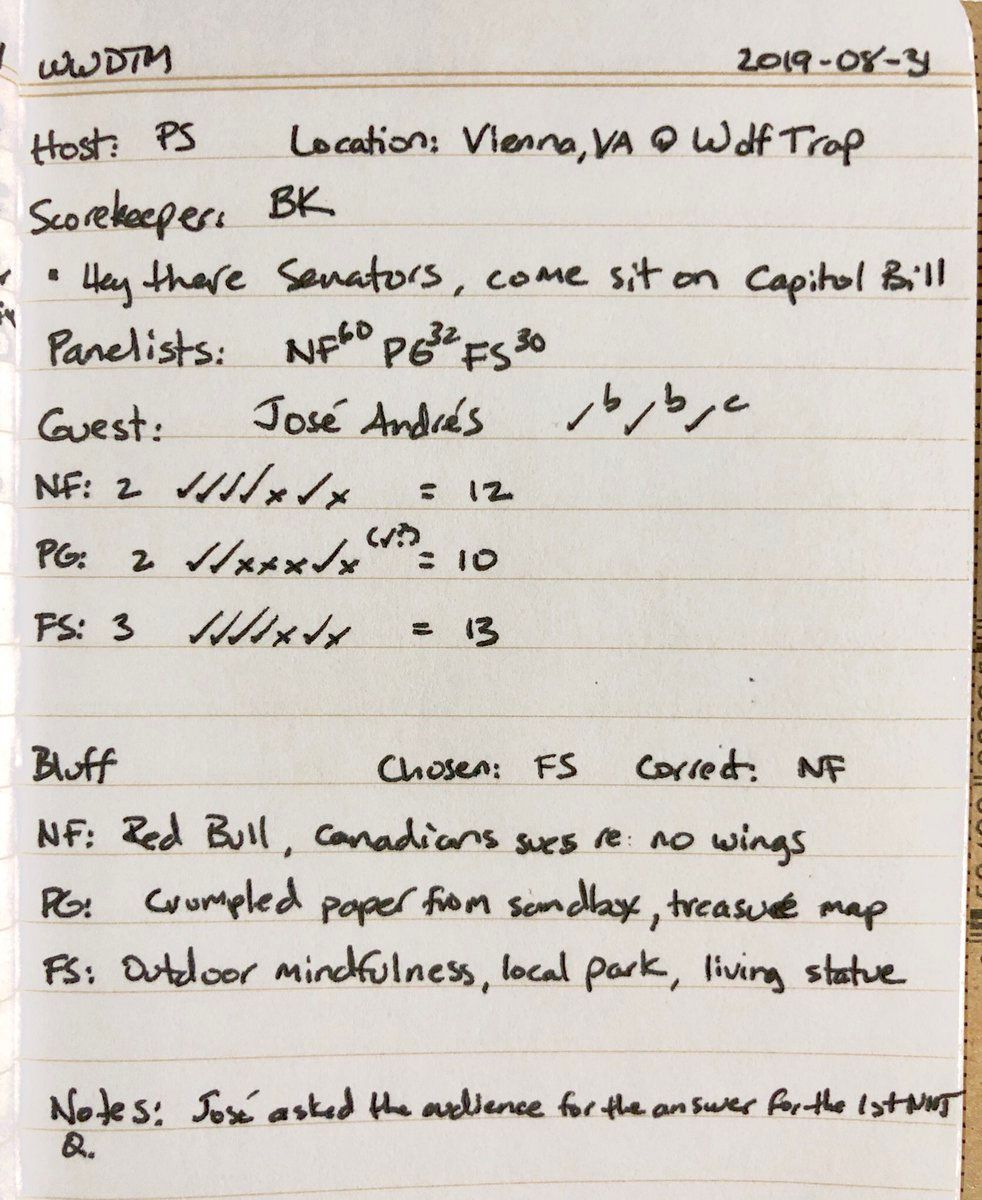 WWDTM 2019-08-31
Host: PS Location: Vienna, VA @ Wolf Trap
Scorekeeper: BK
• Hey there Senators, come sit on Capitol Bill
Panelists: NF60 PG32 FS30
Guest: José Andrés ✓b ✓b ✓c
NF: 2 ✓✓✓✓x✓x = 12
PG: 2 ✓✓xxx✓x(✓?) = 10
FS: 3 ✓✓✓✓x✓x = 13
Bluff Chosen: FS Correct: NF
NF: Red Bull, Canadians sues re: no wings
PG: Crumpled paper from sandbox, treasure map
FS: Outdoor mindfulness, local park, living statue
Notes: José asked the audience for the answer for the 1st NMJ
Q.